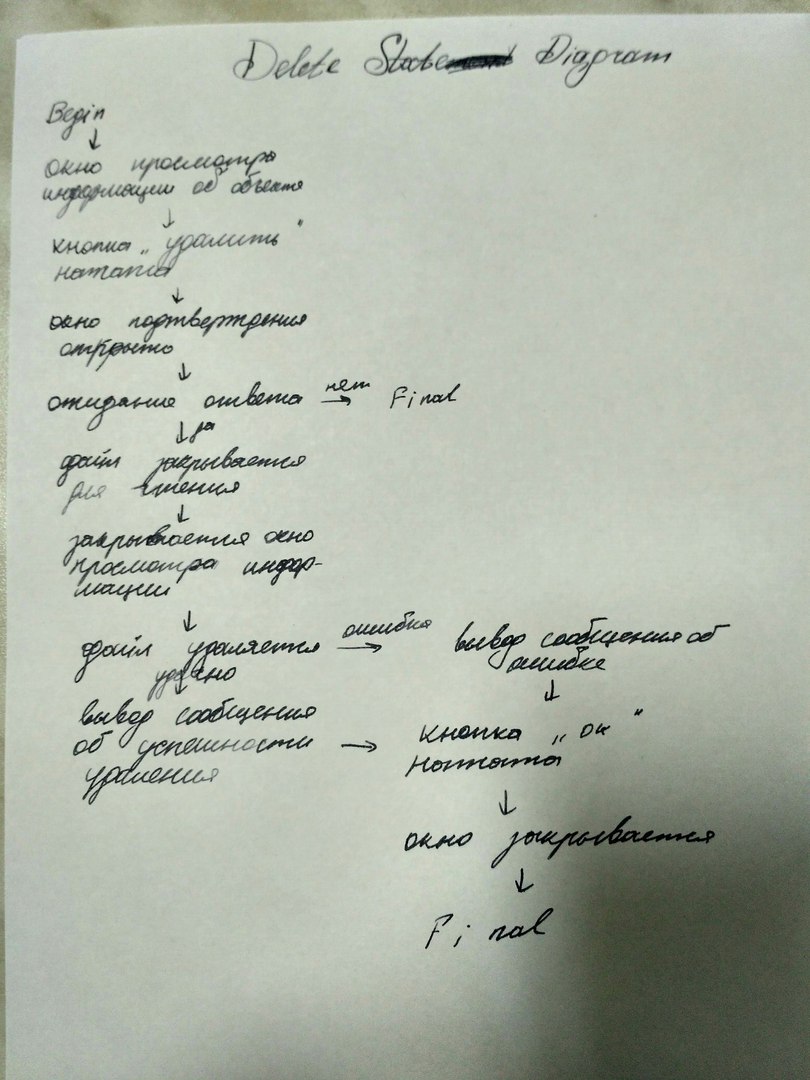 Delete State Diagram
Begin
окно просмотра
информации об объекте
кнопка „удалить"
нажата
окно подтверждения
открыто
ожидание ответа нет Final
да
файл закрывается
для чтения
закрывается окно
просмотра инфор-
мации
файл удаляется ошибка
удачно
вывод сообщения
об успешности
удаления
вывод сообщения об
ошибке
кнопка „ок"
нажата
окно закрывается
Final